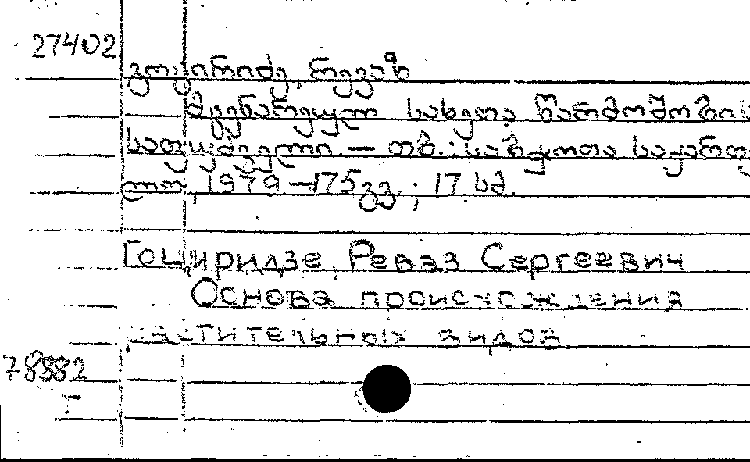 27402
გოცირიძე, რევაზ
მცენარეულ სახეთა წარმოშობის
საფუძველი. — თბ.: საბჭოთა საქართვე
ლო, 1979 — 175 გვ.; 17 სმ.
Гоциридзе, Реваз Сергеевич
Основа происхождения
растительных видов
78882
Г